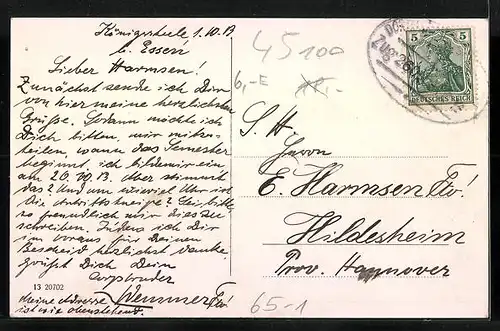 Königssteele 1.10.13
b. Essen
Lieber Harmsen!
Zunächst sende ich Dir
von hier meine herzlichsten
Grüße. Sodann möchte ich
Dich bitten, mir mitzu-
teilen, wann das Semester
beginnt, ich bilde mir ein
am 20. 13. Aber stimmt
das? Und um wieviel Uhr ist
die Antrittskneipe? Sei, bitte,
so freundlich mir dies zu
schreiben. Indem ich Dir
im voraus für Deinen
Bescheid herzlichst danke
grüßt Dich Dein
Corpsbruder
Wemmer
Meine Adresse
ist wie obenstehend.
13 20702
45100
6,-E
S. H.
Herrn
E. Harmsen
Hildesheim
Prov. Hannover
65-1
5 5
DEUTSCHES REICH
Zug